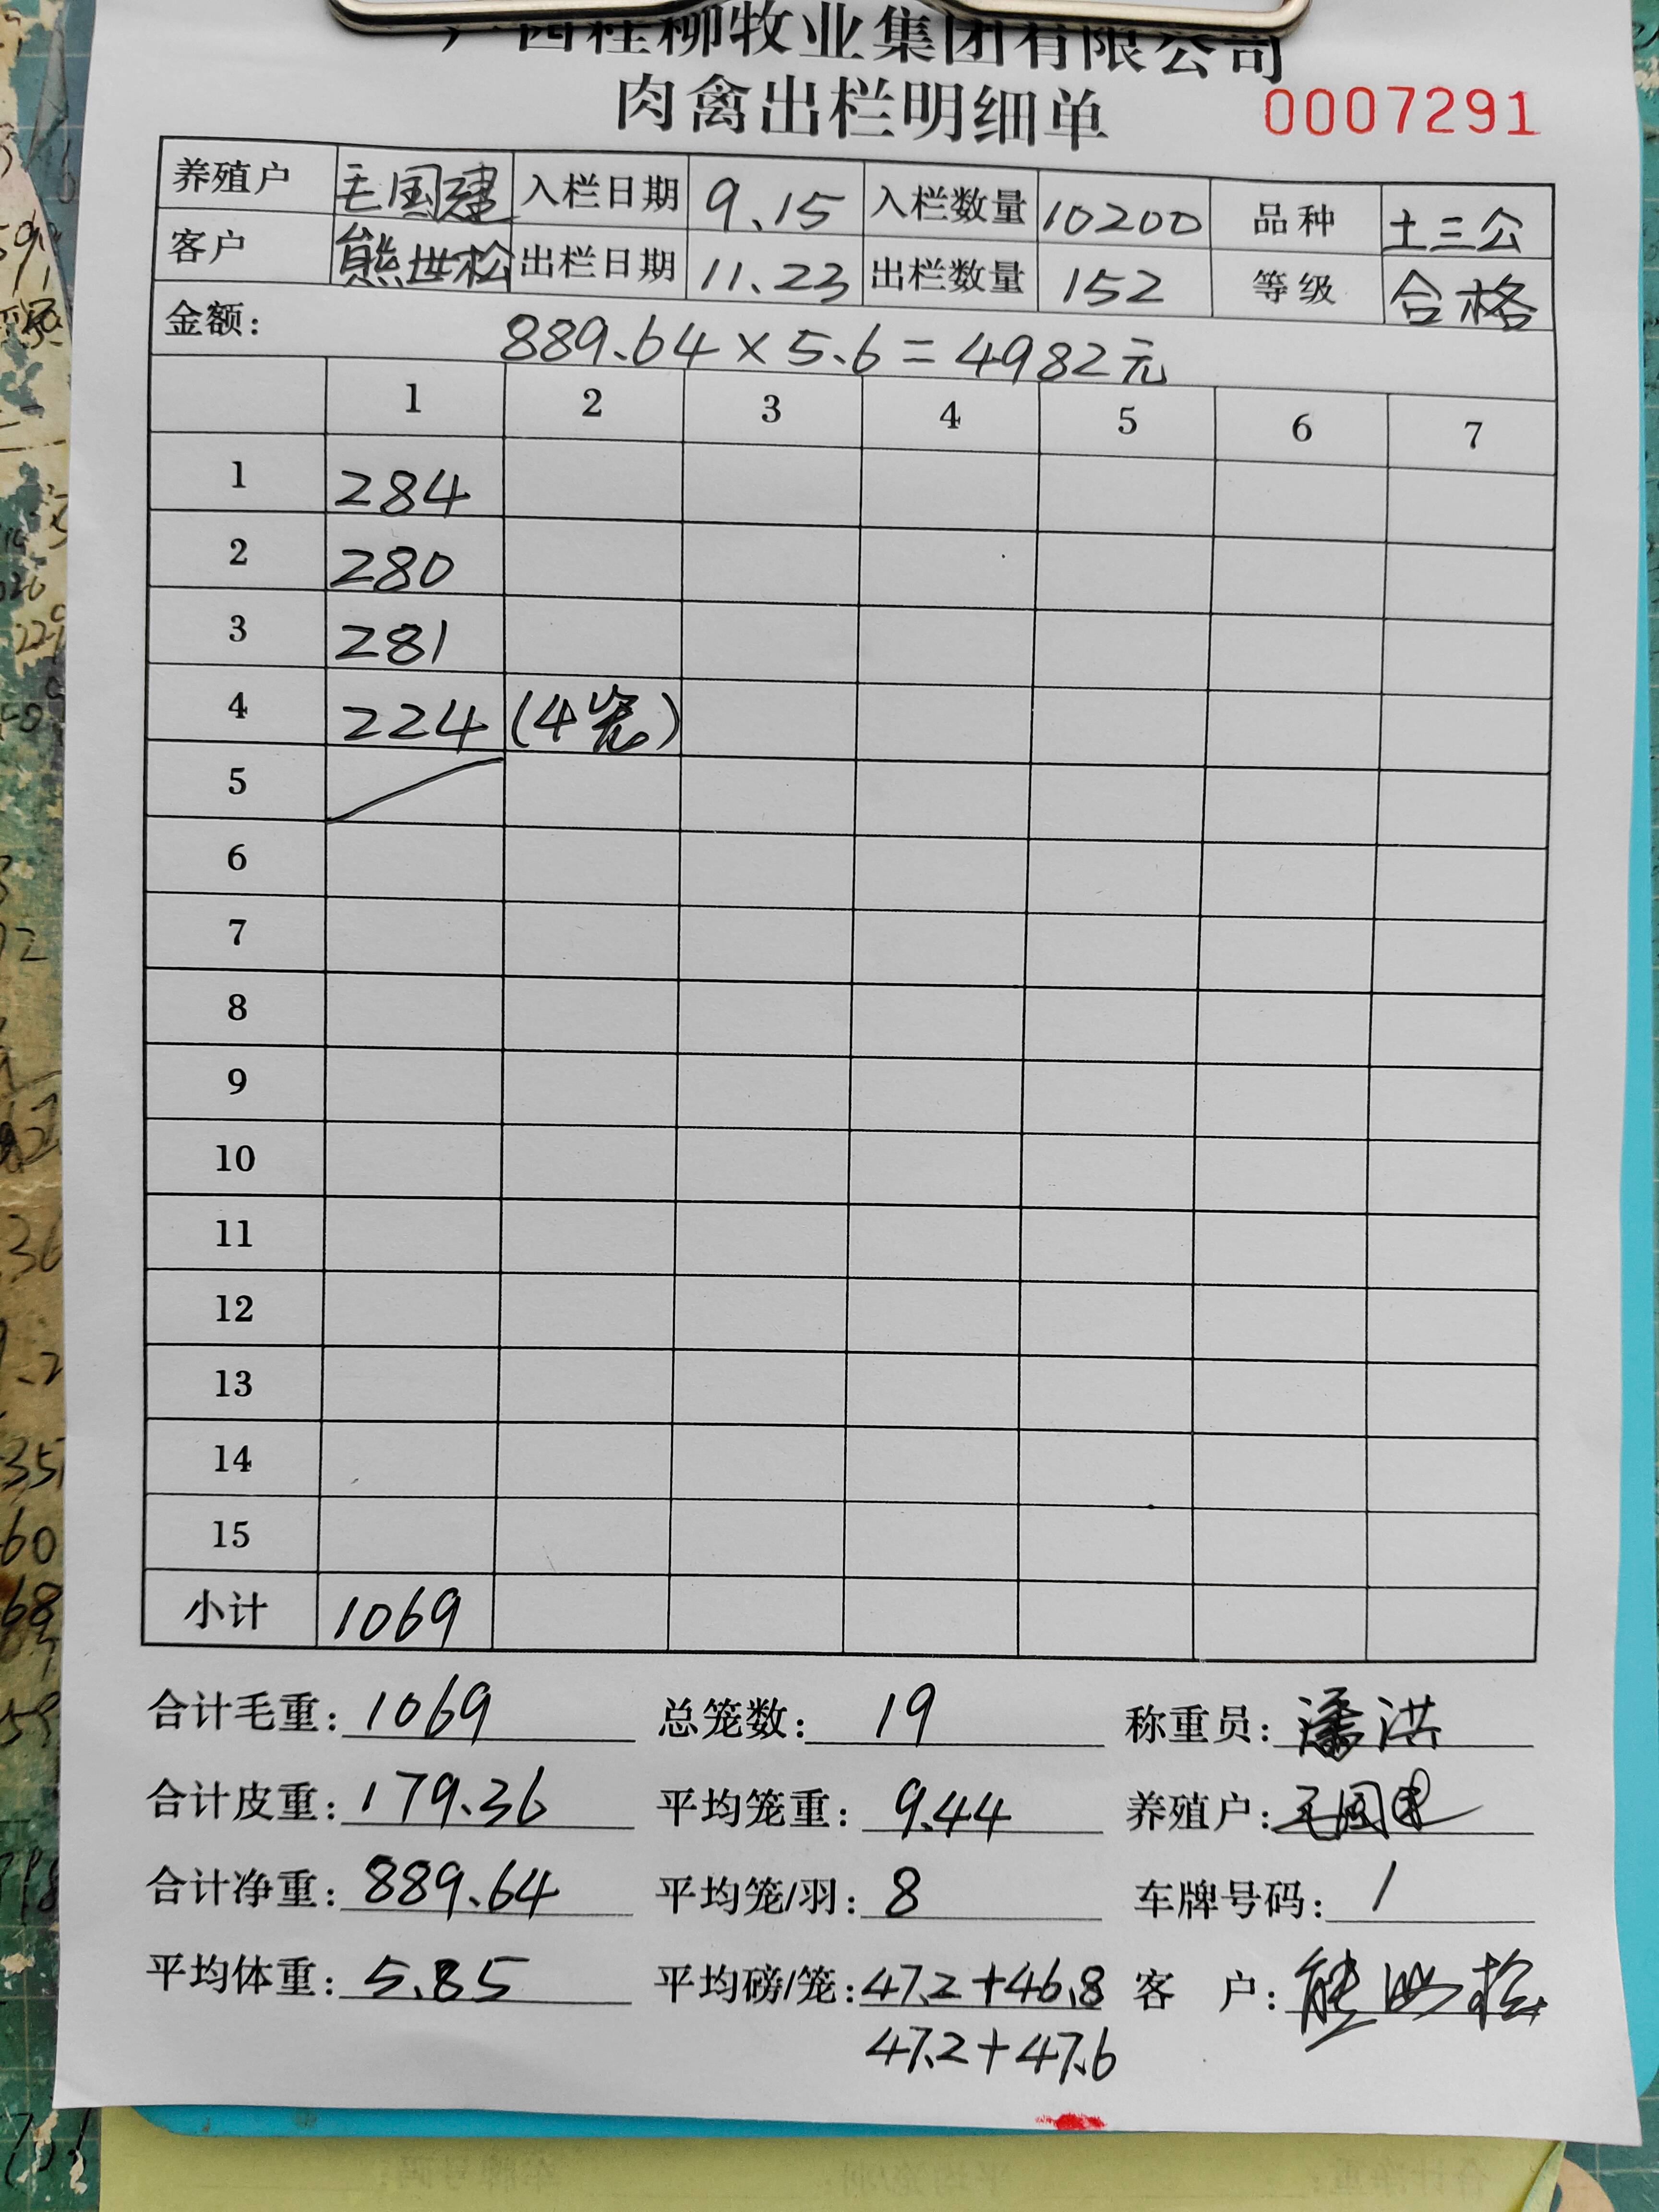 西桂柳牧业集团有限公司
肉禽出栏明细单 0007291
养殖户 毛国建 入栏日期 9.15 入栏数量 10200 品种 土三公
客户 熊世松 出栏日期 11.23 出栏数量 152 等级 合格
金额: 889.64×5.6=4982元
1 2 3 4 5 6 7
1 284
2 280
3 281
4 224 (4笼)
5
6
7
8
9
10
11
12
13
14
15
小计 1069
合计毛重: 1069 总笼数: 19 称重员: 潘洪
合计皮重: 179.36 平均笼重: 9.44 养殖户: 毛国建
合计净重: 889.64 平均笼/羽: 8 车牌号码: 1
平均体重: 5.85 平均磅/笼: 47.2+46.8 客户: 熊世松
47.2+47.6